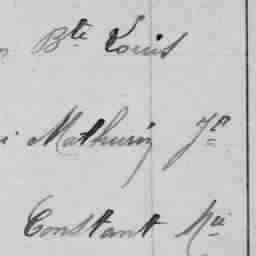 Bte Louis
Mathurin Jh
Constant Mie